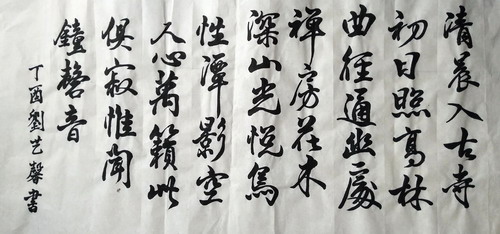 清晨入古寺
初日照高林
曲徑通幽處
禅房花木
深山光悦鳥
性潭影空
人心萬籟此
俱寂惟聞
鐘磬音
丁酉劉艺馨書